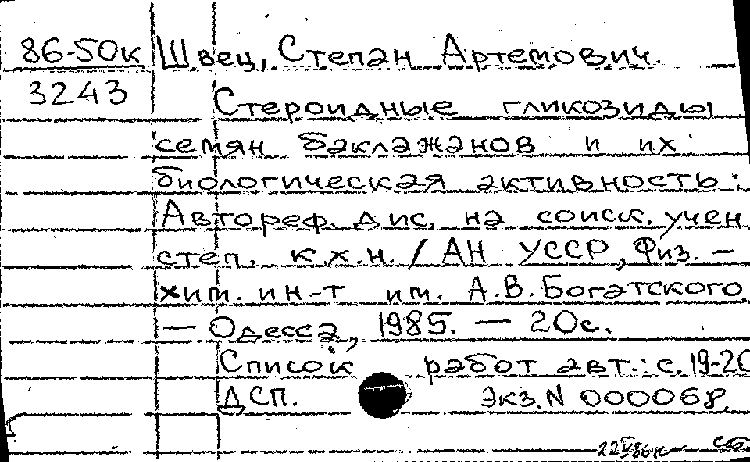 86-50к Швец, Степан Артемович.
3243 Стероидные гликозиды
семян баклажанов и их
биологическая активность:
Автореф. дис. на соиск. учен
степ. к.х.н. / АН УССР, Физ. –
хим. ин-т им. А.В. Богатского
– Одесса, 1985. – 20с.
Список работ авт.: с. 19-20
ДСП. Экз. N 000068.